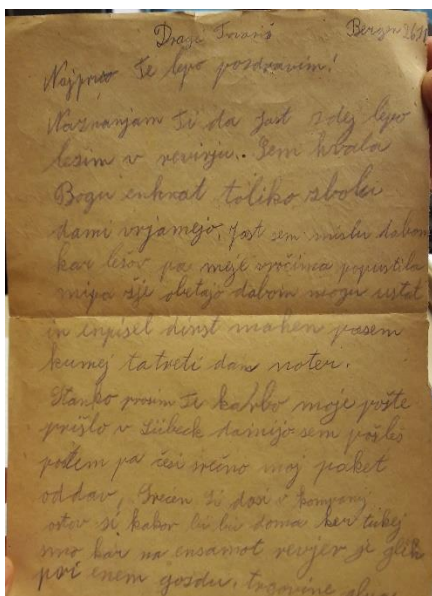 Dragi Bergen 26/
Najprvo Te lepo pozdravim!
Naznanjam Ti da Jast zdej lepo
lezim v revirju. Sem hvala
Bogu enkrat toliko zbolu
dami vrjamejo. Jast sem mislu dabom
kar lešov pa meje vročina popustila
mipa zje obetajo dabom mogu ustat
in dinst mahen pasem
kumej ta treti dan noter.
Stanko prosim Te kar bo moje pošte
prišlo v Lübeck damijo sem pošleš
potem pa česi srečno moj paket
oddav, Srečen si dasi v kompanij
ostov si kakor bi biv doma ker tukej
smo kar na ensamot revjer je glih
pri enem gozdu, trgovine